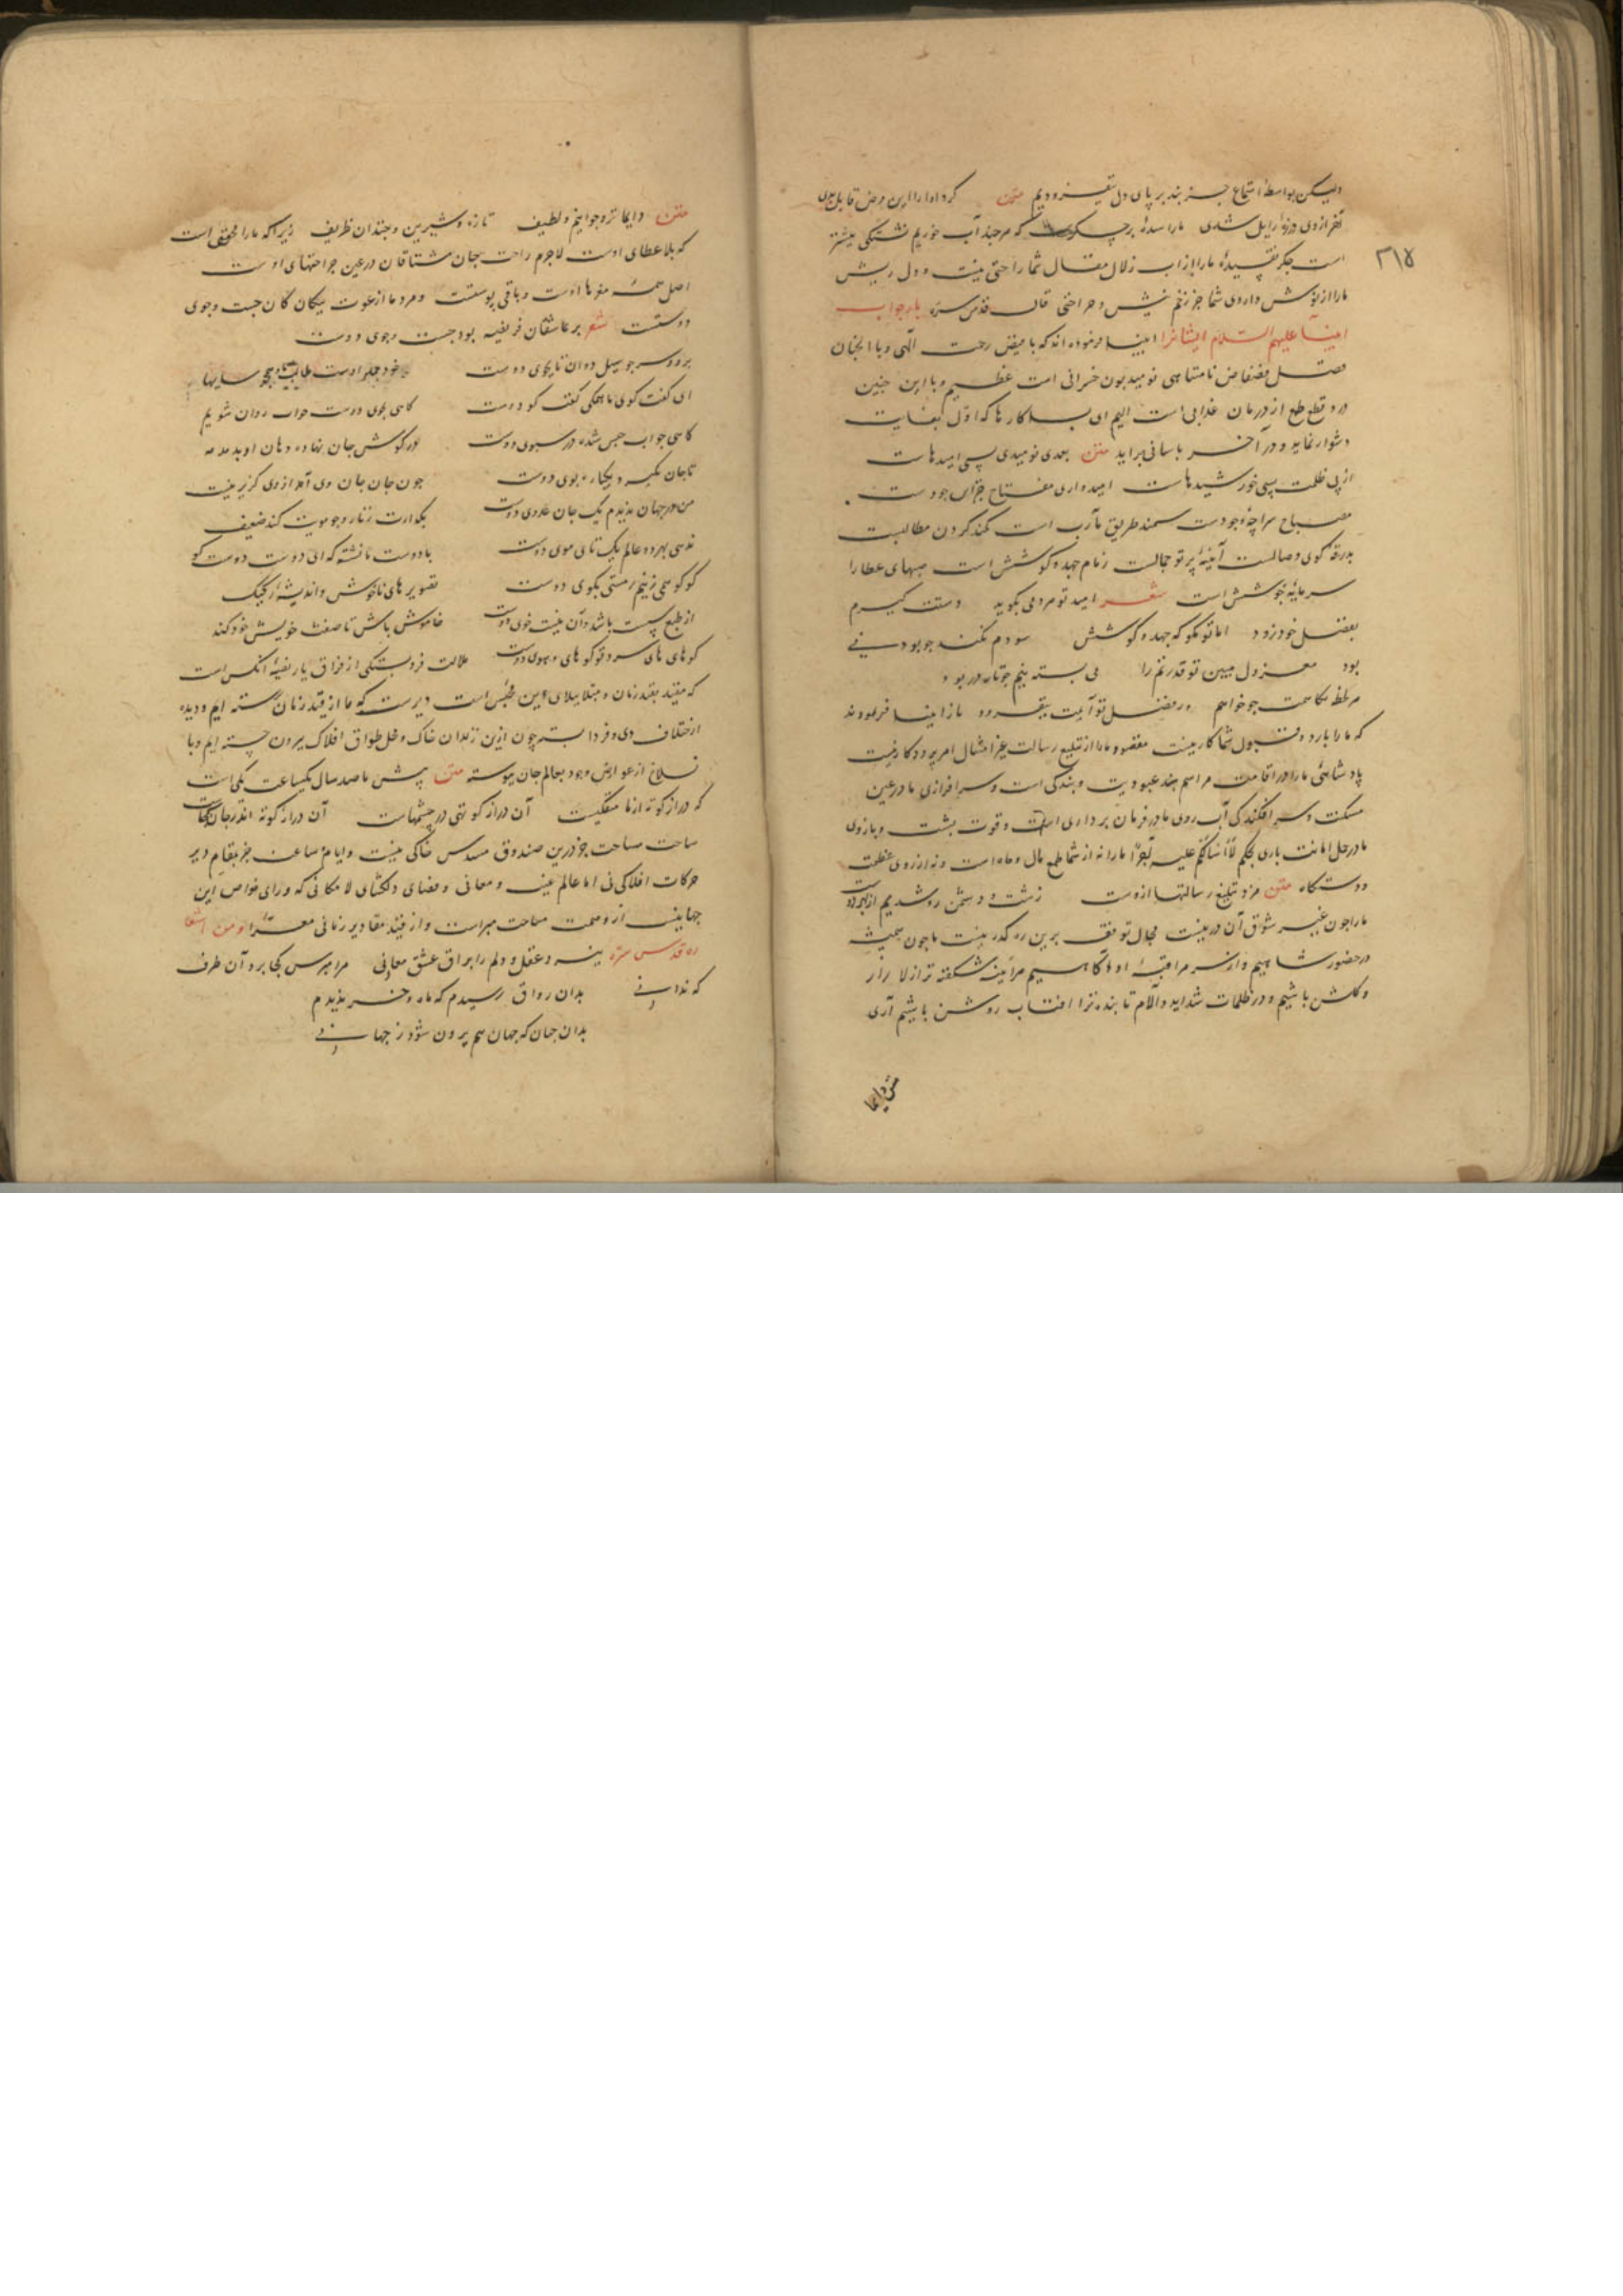 ولیکن بواسطهٔ استماع جز بند بر پای دل نیفزودیم متن کرد دوا را این مرض قابل بدی
آخر از وی ذرهٔ زایل شدی ما را سده بر جگر است که هر چند آب خوریم تشنگی بیشتر
۳۱۸
است جگر تفسیدهٔ ما را از آب زلال مقال شما راحتی نیست و دل ریش
ما را از نوش داروی شما جز زخم نیش و جراحتی قال قدس سره باز جواب
انبیا علیهم السلام ایشانرا انبیا فرموده اند که با فیض رحمت الهی و با
فضل فضفاض نامتناهی نومید بودن خسرانی است عظیم و با این چنین
درد قطع طمع از درمان عذابی است الیم ای بسا کارها که اول بغایت
دشوار نماید و در آخر باسانی براید متن بعد نومیدی بسی امیدهاست
از پی ظلمت بسی خورشیدهاست امیدواری مفتاح خزاین جودست
مصباح سراچهٔ وجودست سمند طریق مآرب است کمند گردن مطالبست
بدرقه کوی وصالست آینهٔ پرتو جمالست زمام جهد و کوشش است صهبای عطا را
سرمایهٔ جوشش است شعر امید تو هر دمی بگوید دستت گیرم
بفضل خود زود اما تو مگو که جهد و کوشش سودم نکند چو بودنی
بود معزول مبین تو قدرتم را می بسته بینم چو تار در پود
هر لحظه مکاست چو خواهم در فضل تو آیمت بیفزود باز انبیا فرمودند
که ما را با رد و قبول شما کار نیست مقصود ما را از تبلیغ رسالت غیر امتثال امر پروردگار نیست
پادشاهی ما را در اقامت مراسم عبودیت و بندگی است و سرافرازی ما در عین
مسکنت و سرافکندگی آب روی ما در فرمان برداری است و قوت پشت و بازوی
ما در حمل امانت باری بحکم لا اسألکم علیه اجرا ما را نه از شما طمع مال و جاه است و نه آرزوی عظمت
و دستگاه متن مزد تبلیغ رسالتها ازوست زشت و دشمن رو شدیم از بهر دوست
ما را چون غیر شوق آن در نیست مجال توقف برین ره گذر نیست ما چون همیشه
در حضور شاهیم و از سر مراقبهٔ او آگاهیم هر آینه شکفته تر از لاله زار
و گلشن باشیم و در ظلمات شداید و آلام تابنده تر از آفتاب روشن باشیم آری
متن دایما
متن دایما تر و جوانیم و لطیف تازه و شیرین و خندان ظریف زیرا که ما را محقق است
که بلا عطای اوست لاجرم راحت جان مشتاقان در عین جراحتهای اوست
اصل همه مغزها اوست و باقی پوستت و مراد ما از دعوت بیگان گان جست و جوی
دوستت شعر بر عاشقان فریضه بود جست و جوی دوست
بر رو و سر چو سیل دوان تا بجوی دوست خود جمله اوست طالب و ما همچو سایها
ای گفت گوی ما همگی گفت گو دوست گاهی بجوی دوست چو آب روان شویم
گاهی چو آب حبس شده در سبوی دوست در گوش جان نهاده دهان او بدمدمه
تا جان بگیرد یکباره بوی دوست چون جان جان وی آمد از وی گزیر نیست
من در جهان ندیدم یک جان عدوی دوست بگدازدت ز ناز و چو مویت کند ضعیف
ندهی بهر دو عالم یک تای موی دوست با دوست ما نشسته که ای دوست دوست کو
کو کو همی زنیم ز مستی بکوی دوست تصویرهای ناخوش و اندیشهٔ رکیک
از طبع سست باشد و آن نیست خوی دوست خاموش باش تا صفت خویش خود کند
کو های های سرد تو کو های و هوی دوست ملالت و دلتنگی از فراق یار نصیبهٔ آنکس است
که مقید بقید زمان و مبتلا ببلای این محبس است دیرست که ما از قید زمان رسته ایم و دیده
از اختلاف دی و فردا بسته چون ازین زندان خاک و محل طواق افلاک بیرون جسته ایم و با
انسلاخ از عوارض وجود بعالم جان پیوسته متن پیش ما صد سال یکساعت یکی است
که دراز و کوته از ما منفکیست آن دراز و کوتهی در جسمهاست آن دراز و کوته اندر جان کجاست
ساحت مساحت جز درین صندوق مسدس خاکی نیست و ایام و ساعت جز بمقام دیر
حرکات افلاکی نی اما عالم غیب و معانی و فضای دلگشای لامکانی که ورای خواص این
جهانیست از وصمت مساحت مبراست و از قید مقادیر زمانی معرا و من اشعا
ره قدس سره بنه و عقل و دلم را براق عشق معانی مرا مپرس کجا برد آن طرف
که ندانی بدان رواق رسیدم که ماه و چرخ ندیدم
بدان جهان که جهان هم برون شود ز جهانی